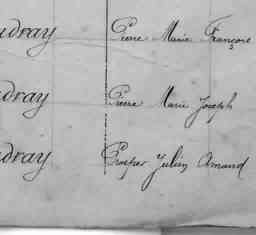 udray Pierre Marie François
udray Pierre Marie Joseph
udray Prosper Julien Amand